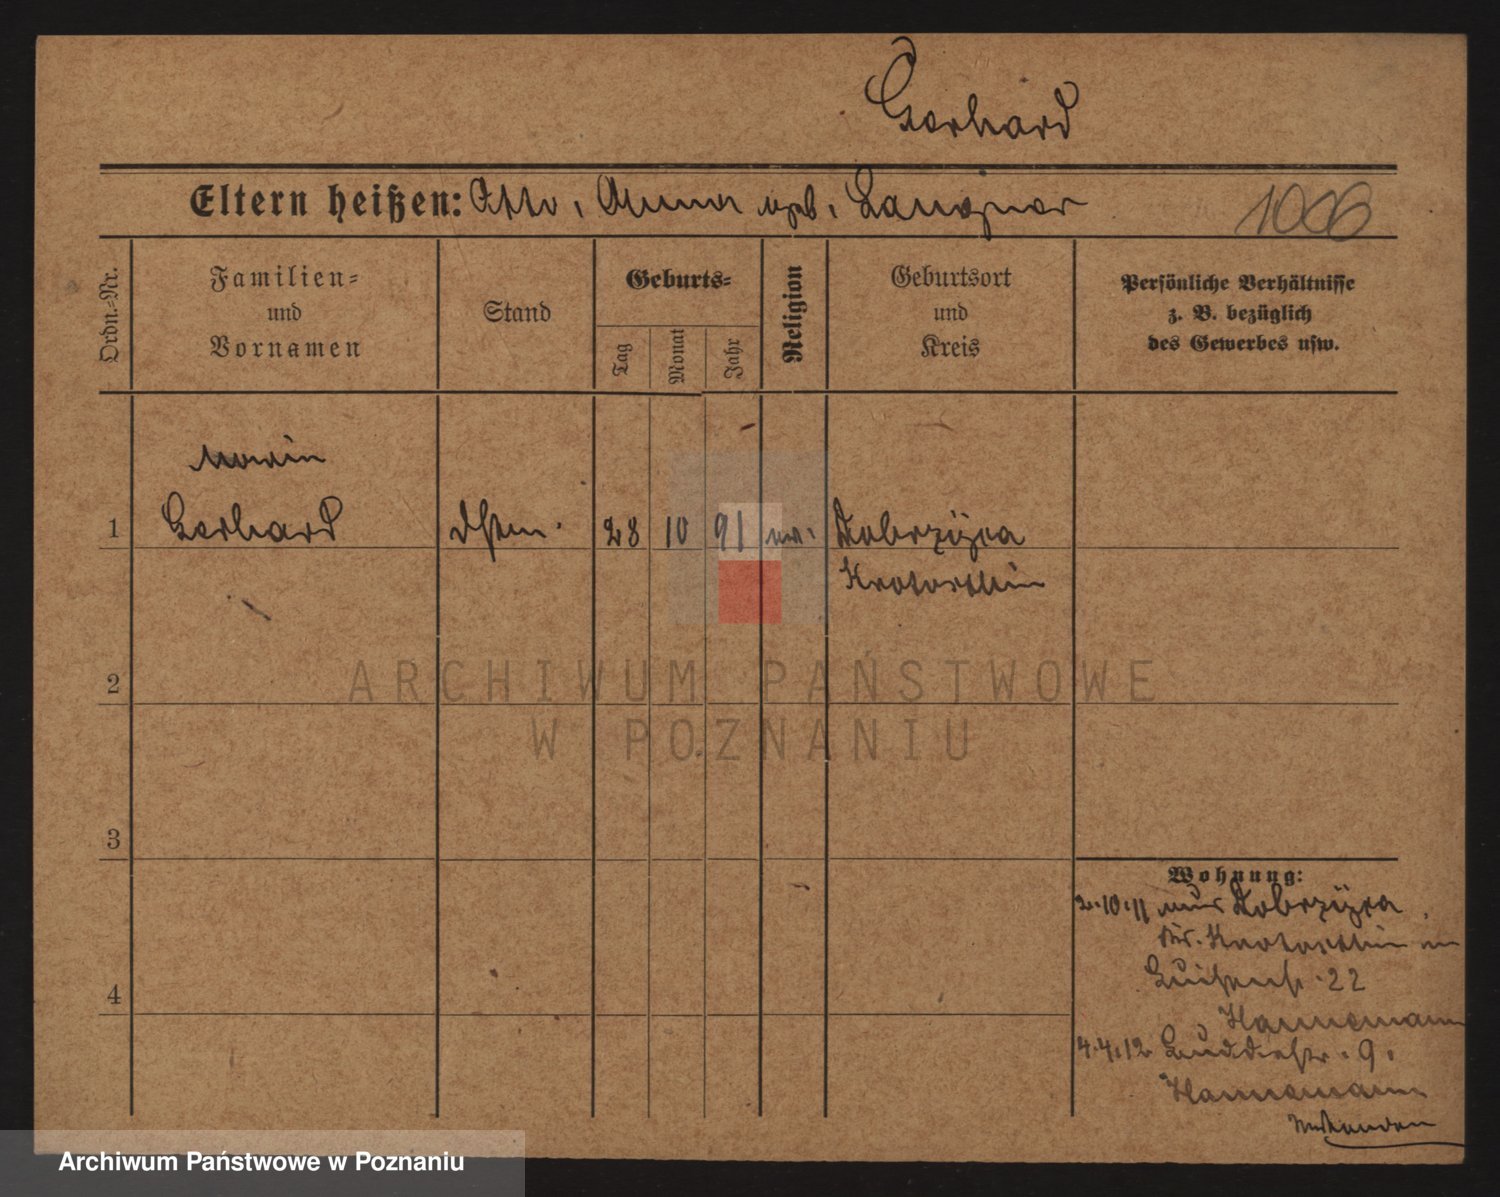 Gerhard
Eltern heißen: Otto, Anna geb.
1006
Ordn.-Nr.
Familien-
und
Vornamen
Stand
Geburts-
Tag
Monat
Jahr
Religion
Geburtsort
und
Kreis
Persönliche Verhältnisse
z. B. bezüglich
des Gewerbes usw.
1
Gerhard
28 10 91
Dobrzyca
Krotoschin
2
ARCHIWUM PAŃSTWOWE
W POZNANIU
3
Wohnung:
2.10.11 aus Dobrzyca
Kr. Krotoschin in
Luisenstr. 22
Hannemann
4
4.4.12 9.
Hannemann
Archiwum Państwowe w Poznaniu